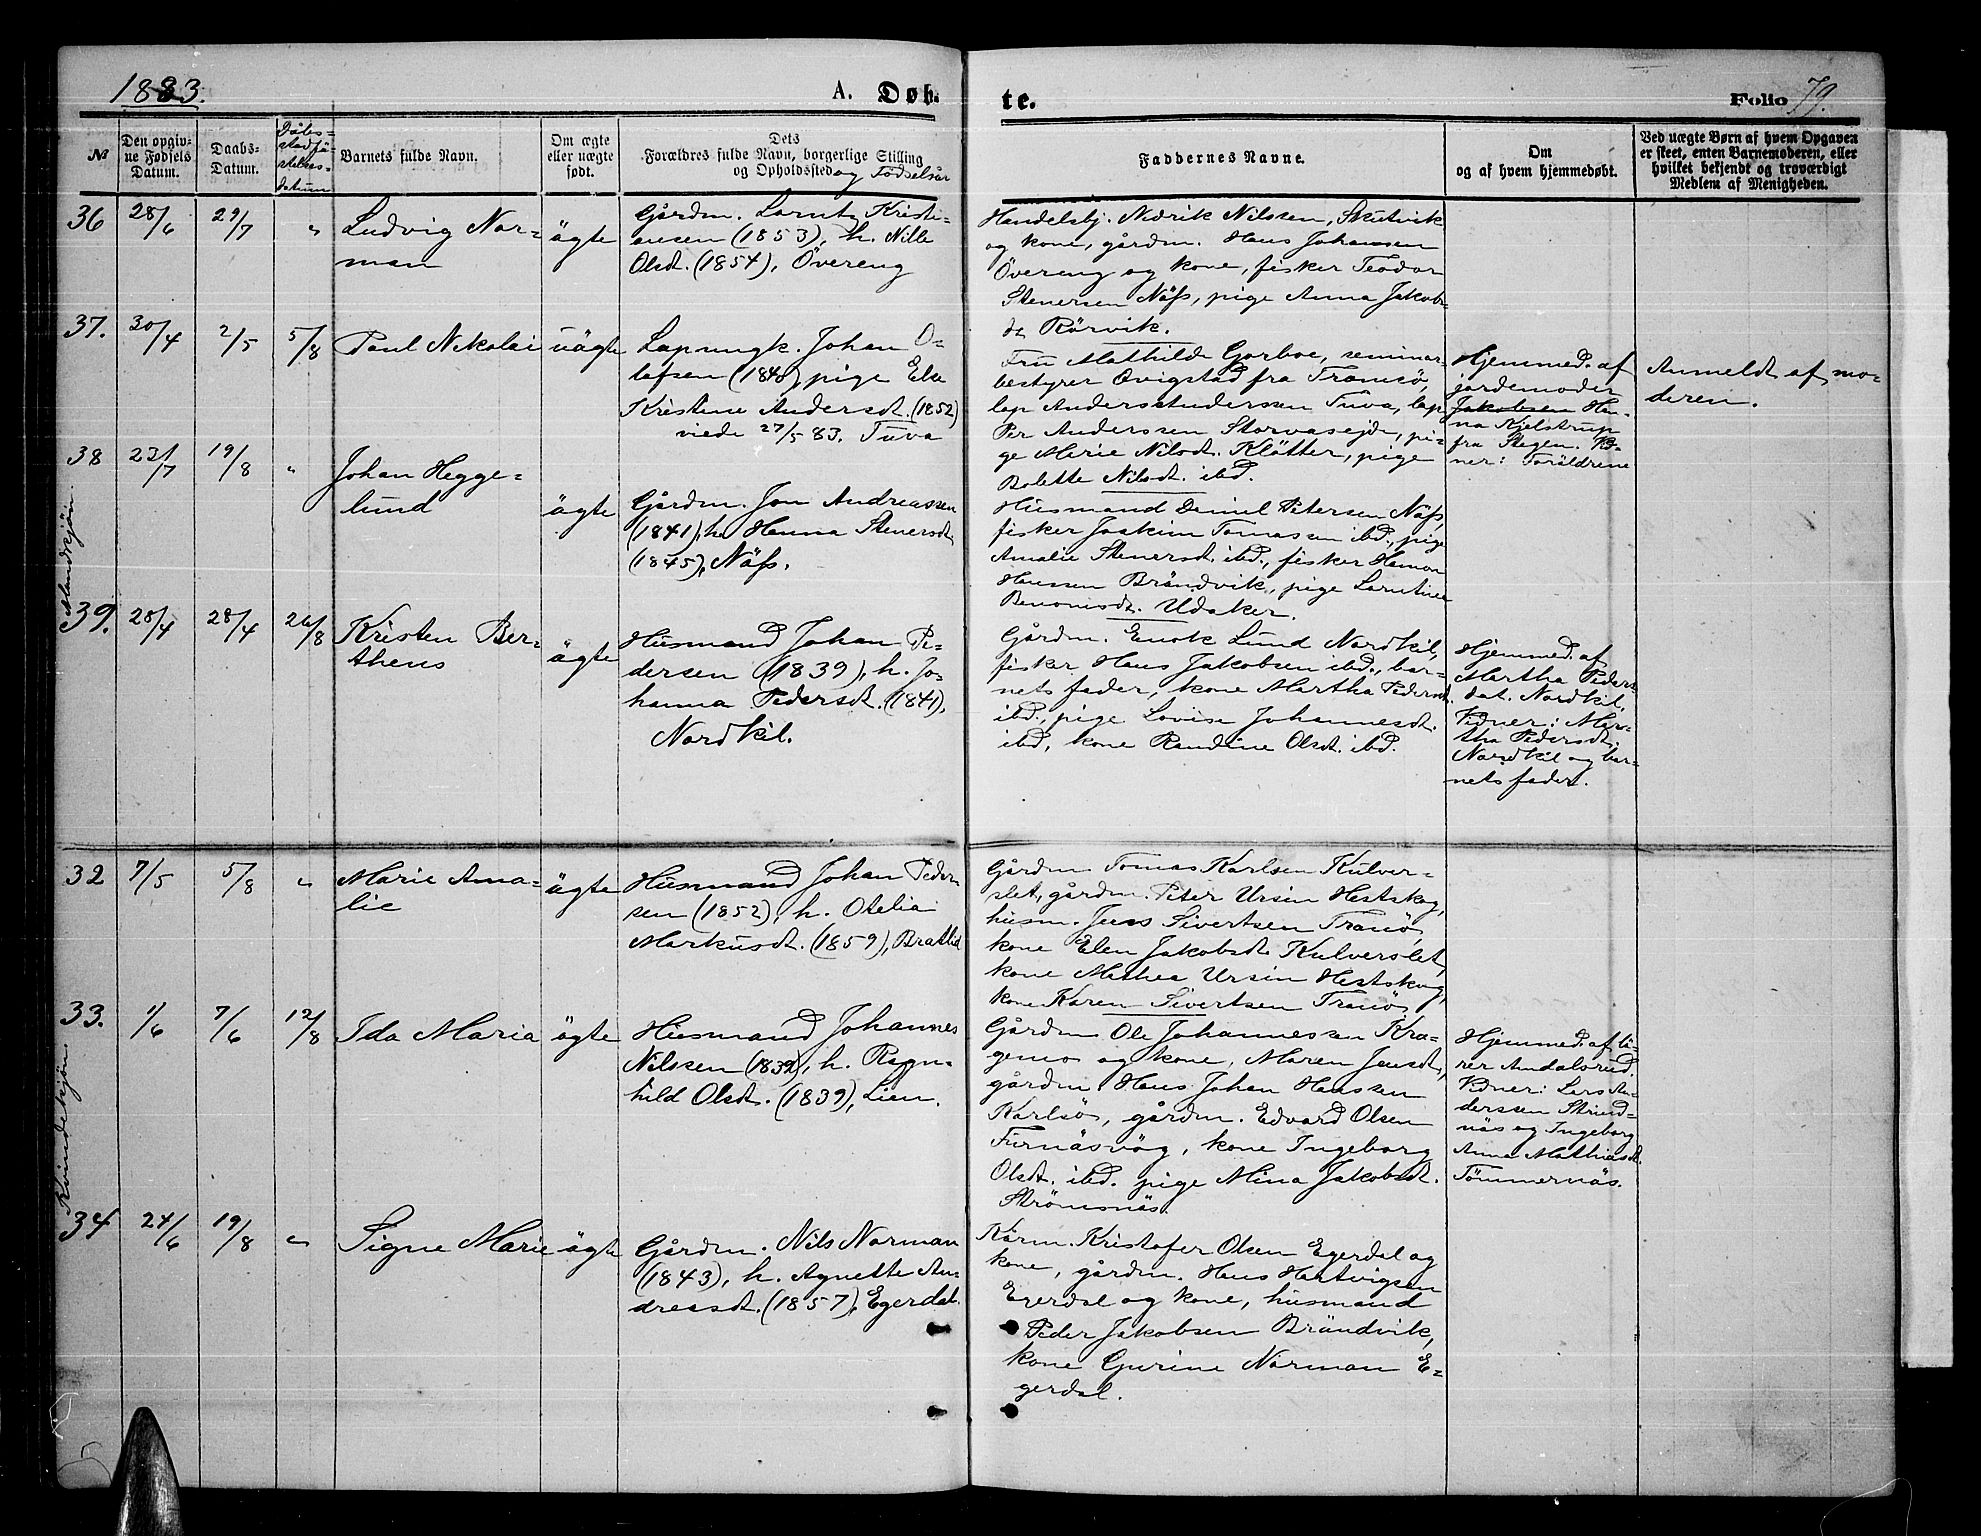 1883.
A. Døb-
te.
Folio 79.
№
Den opgiv-
ne Fødsels
Datum.
Daabs-
Datum.
Dåbs-
stadfä-
stelses-
datum
Barnets fulde Navn.
Om ægte
eller uægte
født.
Dets
Forældres fulde Navn, borgerlige Stilling
og Opholdssted og Födselsår
Faddernes Navne.
Om
og af hvem hjemmedøbt.
Ved uægte Børn af hvem Opgaven
er skeet, enten Barnemoderen, eller
hvilket bekjendt og troværdigt
Medlem af Menigheden.
Mandkjön.
36
28/6
29/7
"
Ludvig Nor-
man
ägte
Gårdm. Larntz Kristi-
ansen (1853), h. Nille
Olsdt. (1854), Övereng
Handelsbj. Nidrik Nilssen, Skutvik
og kone, gårdm. Hans Johansen
Övereng og kone, fisker Teodor
Stenersen Näss, pige Anna Jakobs-
dt Rörvik.
37.
30/4
2/5
5/8
Paul Nikolai
uägte
Lapungk. Johan O-
lafsen (1840), pige Elen
Kristine Andersdt. (1852)
viede 27/5 83. Tuva
Fru Mathilde Gorboe, seminar-
bestyrer Qvigstad fra Tromsö,
lap Anders Anderssen Tuva, lap
Per Anderssen Storvasejde, pi-
ge Merie Nilsdt. Klötter, pige
Bolette Nilsdt. ibd.
Hjemmed. af
jordemoder
Jakobsen Han-
na Kjelstrup
fra Stegen. Vid-
ner: Foräldrene
Anmeldt af mo-
deren.
38
22/7
19/8
"
Johan Hegge-
lund
ägte
Gårdm. Jon Andreassen
(1841), h. Hanna Stenersdt.
(1845), Näss.
Husmand Daniel Petersen Näss,
fisker Joakim Tomassen ibd., pige
Amalie Stenersdt. ibd., fisker Hemon
Hanssen Brändvik, pige Larntine
Benonisdt. Udaker.
39.
28/4
28/4
26/8
Kristen Ber-
thens
ägte
Husmand Johan Pe-
dersen (1839), h. Jo-
hanna Pedersdt. (1841),
Nordkil.
Gårdm. Enok Lund Nordkil,
fisker Hans Jakobsen ibd., bar-
nets fader, kone Martha Pedersdt.
ibd., pige Lovise Johannesdt.
ibd, kone Randine Olsdt. ibd.
Hjemmed. af
Martha Peders-
dat. Nordkil,
Vidner: Mar-
tha Pedersdt.
Nordkil og bar-
nets fader.
Kvindekjön
32
7/5
5/8
"
Marie Ama-
lie
ägte
Husmand Johan Peder-
sen (1852), h. Otelia
Markusdt. (1859), Bratlid
Gårdm Tomas Karlsen Kulver-
slet, gårdm. Peter Ursin Hestskog,
husm. Jens Sivertsen Tranö,
kone Elen Jakobsdt. Kulverslet,
kone Mathea Ursin Hestskog,
kone Karen Sivertsen Tranö,
33.
1/6
7/6
12/8
Ida Maria
ägte
Husmand Johannes
Nilssen (1839), h. Ragn-
hild Olsdt. (1839), Lien.
Gårdm Ole Johannessen Kra-
gemo og kone, Maren Jensdt,
gårdm Hans Johan Hanssen
Karlsö, gårdm. Edvard Olsen
Furnäsvåg, kone Ingeborg
Olsdt. ibd. pige Mina Jakobsdt.
Strömsnäs.
Hjemmed. af lä-
rer Andalsrud.
Vidner: Lars An-
derssen Strind-
näs og Ingeborg
Anna Mathiasdt.
Tömmernäs.
34
24/6
19/8
"
Signe Marie
ägte
Gårdm. Nils Norman
(1843), h. Agnette An-
dreasdt. (1857), Egerdal.
Kårm. Kristofer Olsen Egerdal og
kone, gårdm. Hans Hartvigsen
Egerdal og kone, husmand
Peder Jakobsen Brändvik,
kone Gurine Norman E-
gerdal.